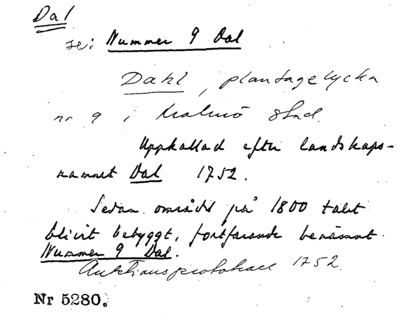 Dal
se: Nummer 9 Dal
Dahl, plantagelycka
nr 9 i Malmö stad.
Uppkallad efter landskaps-
namnet Dal 1752.
Sedan området på 1800 talet
blivit bebyggt, fortfarande benämnt
Nummer 9 Dal.
Auktionsprotokoll 1752.
Nr 5280.